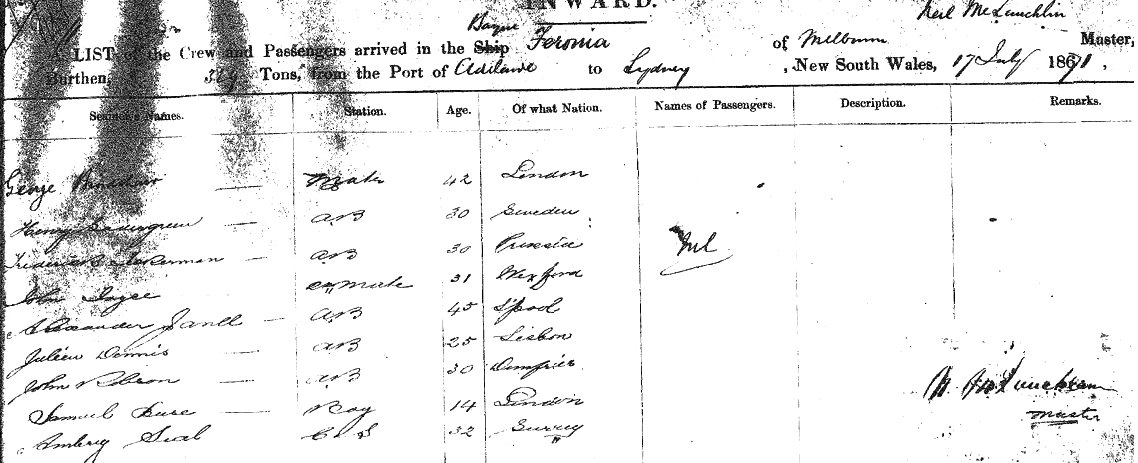 INWARD.
Neil McLauchlin
A LIST of the Crew and Passengers arrived in the Ship Barque Feronia of Melbourn Master,
Burthen, 329 Tons, from the Port of Adilaide to Sydney, New South Wales, 17 July 1871,
Seamen's Names. Station. Age. Of what Nation. Names of Passengers. Description. Remarks.
George — Mate 42 London
Henry — AB 30 Sweden
Frederick Ackerman — AB 30 Prussia Nil
John Joyce Mate 31 Wexford
Alexander — AB 45 L'pool
Julien Dennis — AB 25 Lisbon
John Robson — AB 30 Dumfries
N McLauchlan
Samuel — Boy 14 London
Master
Seal C & S 32 Surrey